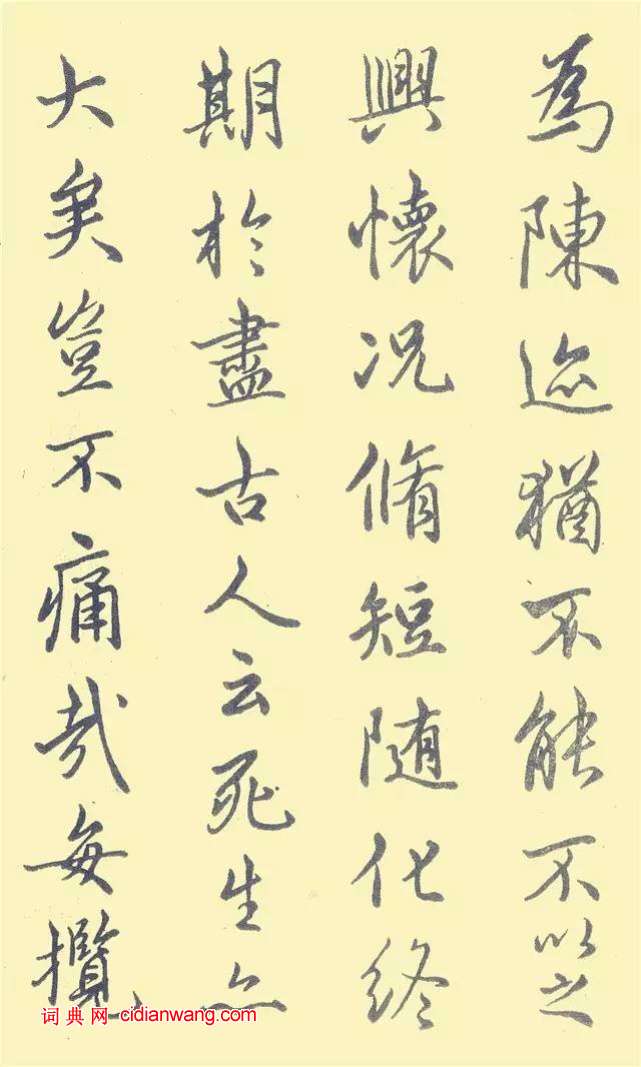 為陳迹猶不能不以之
興懷况脩短随化終
期於盡古人云死生亦
大矣豈不痛哉每攬
词典网 cidianwang.com